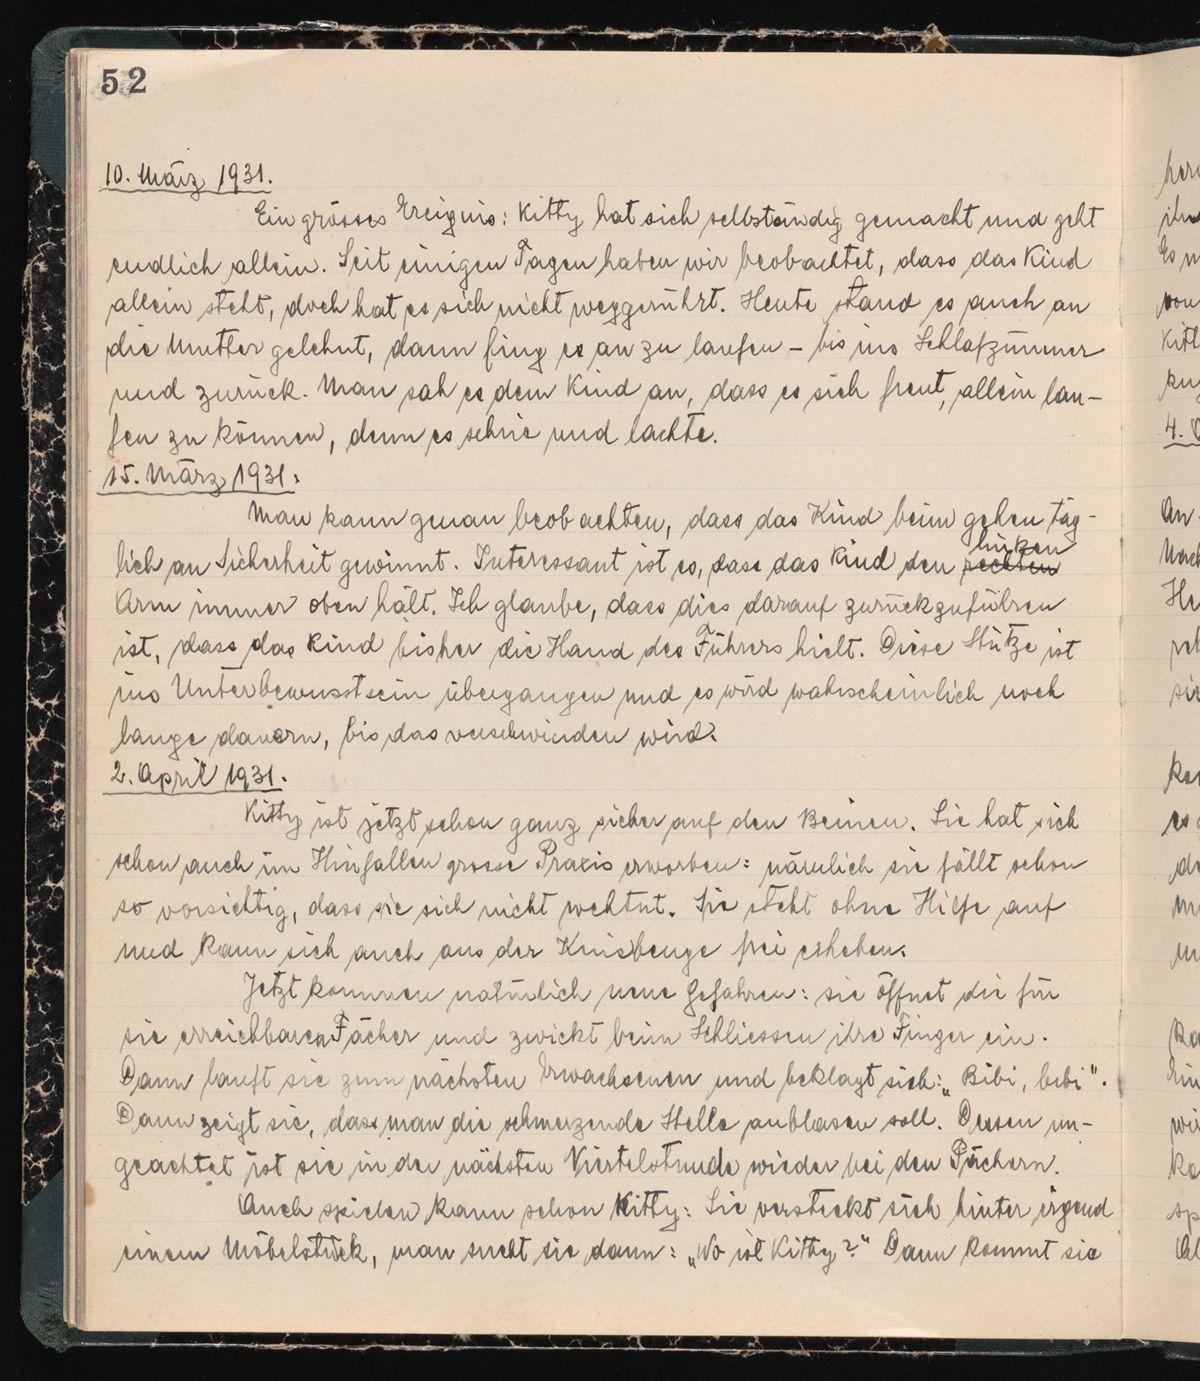 52
10. März 1931.
Ein grosses Ereignis: Kitty hat sich selbständig gemacht und geht
endlich allein. Seit einigen Tagen haben wir beobachtet, dass das Kind
allein steht, doch hat es sich nicht weggerührt. Heute stand es auch an
die Mutter gelehnt, dann fing es an zu laufen – bis ins Schlafzimmer
und zurück. Man sah es dem Kind an, dass es sich freut, allein lau-
fen zu können, denn es schrie und lachte.
15. März 1931.
Man kann genau beobachten, dass das Kind beim gehen täg-
lich an Sicherheit gewinnt. Interessant ist es, dass das Kind den rechten linken
Arm immer oben hält. Ich glaube, dass dies darauf zurückzuführen
ist, dass das Kind bisher die Hand des Führers hielt. Diese Stütze ist
ins Unterbewusstsein übergangen und es wird wahrscheinlich noch
lange dauern, bis das verschwinden wird.
2. April 1931.
Kitty ist jetzt schon ganz sicher auf den Beinen. Sie hat sich
schon auch im Hinfallen grosse Praxis erworben: nämlich sie fällt schon
so vorsichtig, dass sie sich nicht wehtut. Sie steht ohne Hilfe auf
und kann sich auch aus der Kniebeuge frei erheben.
Jetzt kommen natürlich neue Gefahren: sie öffnet die für
sie erreichbaren Fächer und zwickt beim Schliessen ihre Finger ein.
Dann lauft sie zum nächsten Erwachsenen und beklagt sich: „Bibi, bibi“.
Dann zeigt sie, dass man die schmerzende Stelle anblasen soll. Dessen un-
geachtet ist sie in der nächsten Viertelstunde wieder bei den Fächern.
Auch spielen kann schon Kitty: Sie versteckt sich hinter irgend
einem Möbelstück, man sucht sie dann: „Wo ist Kitty?“ Dann kommt sie